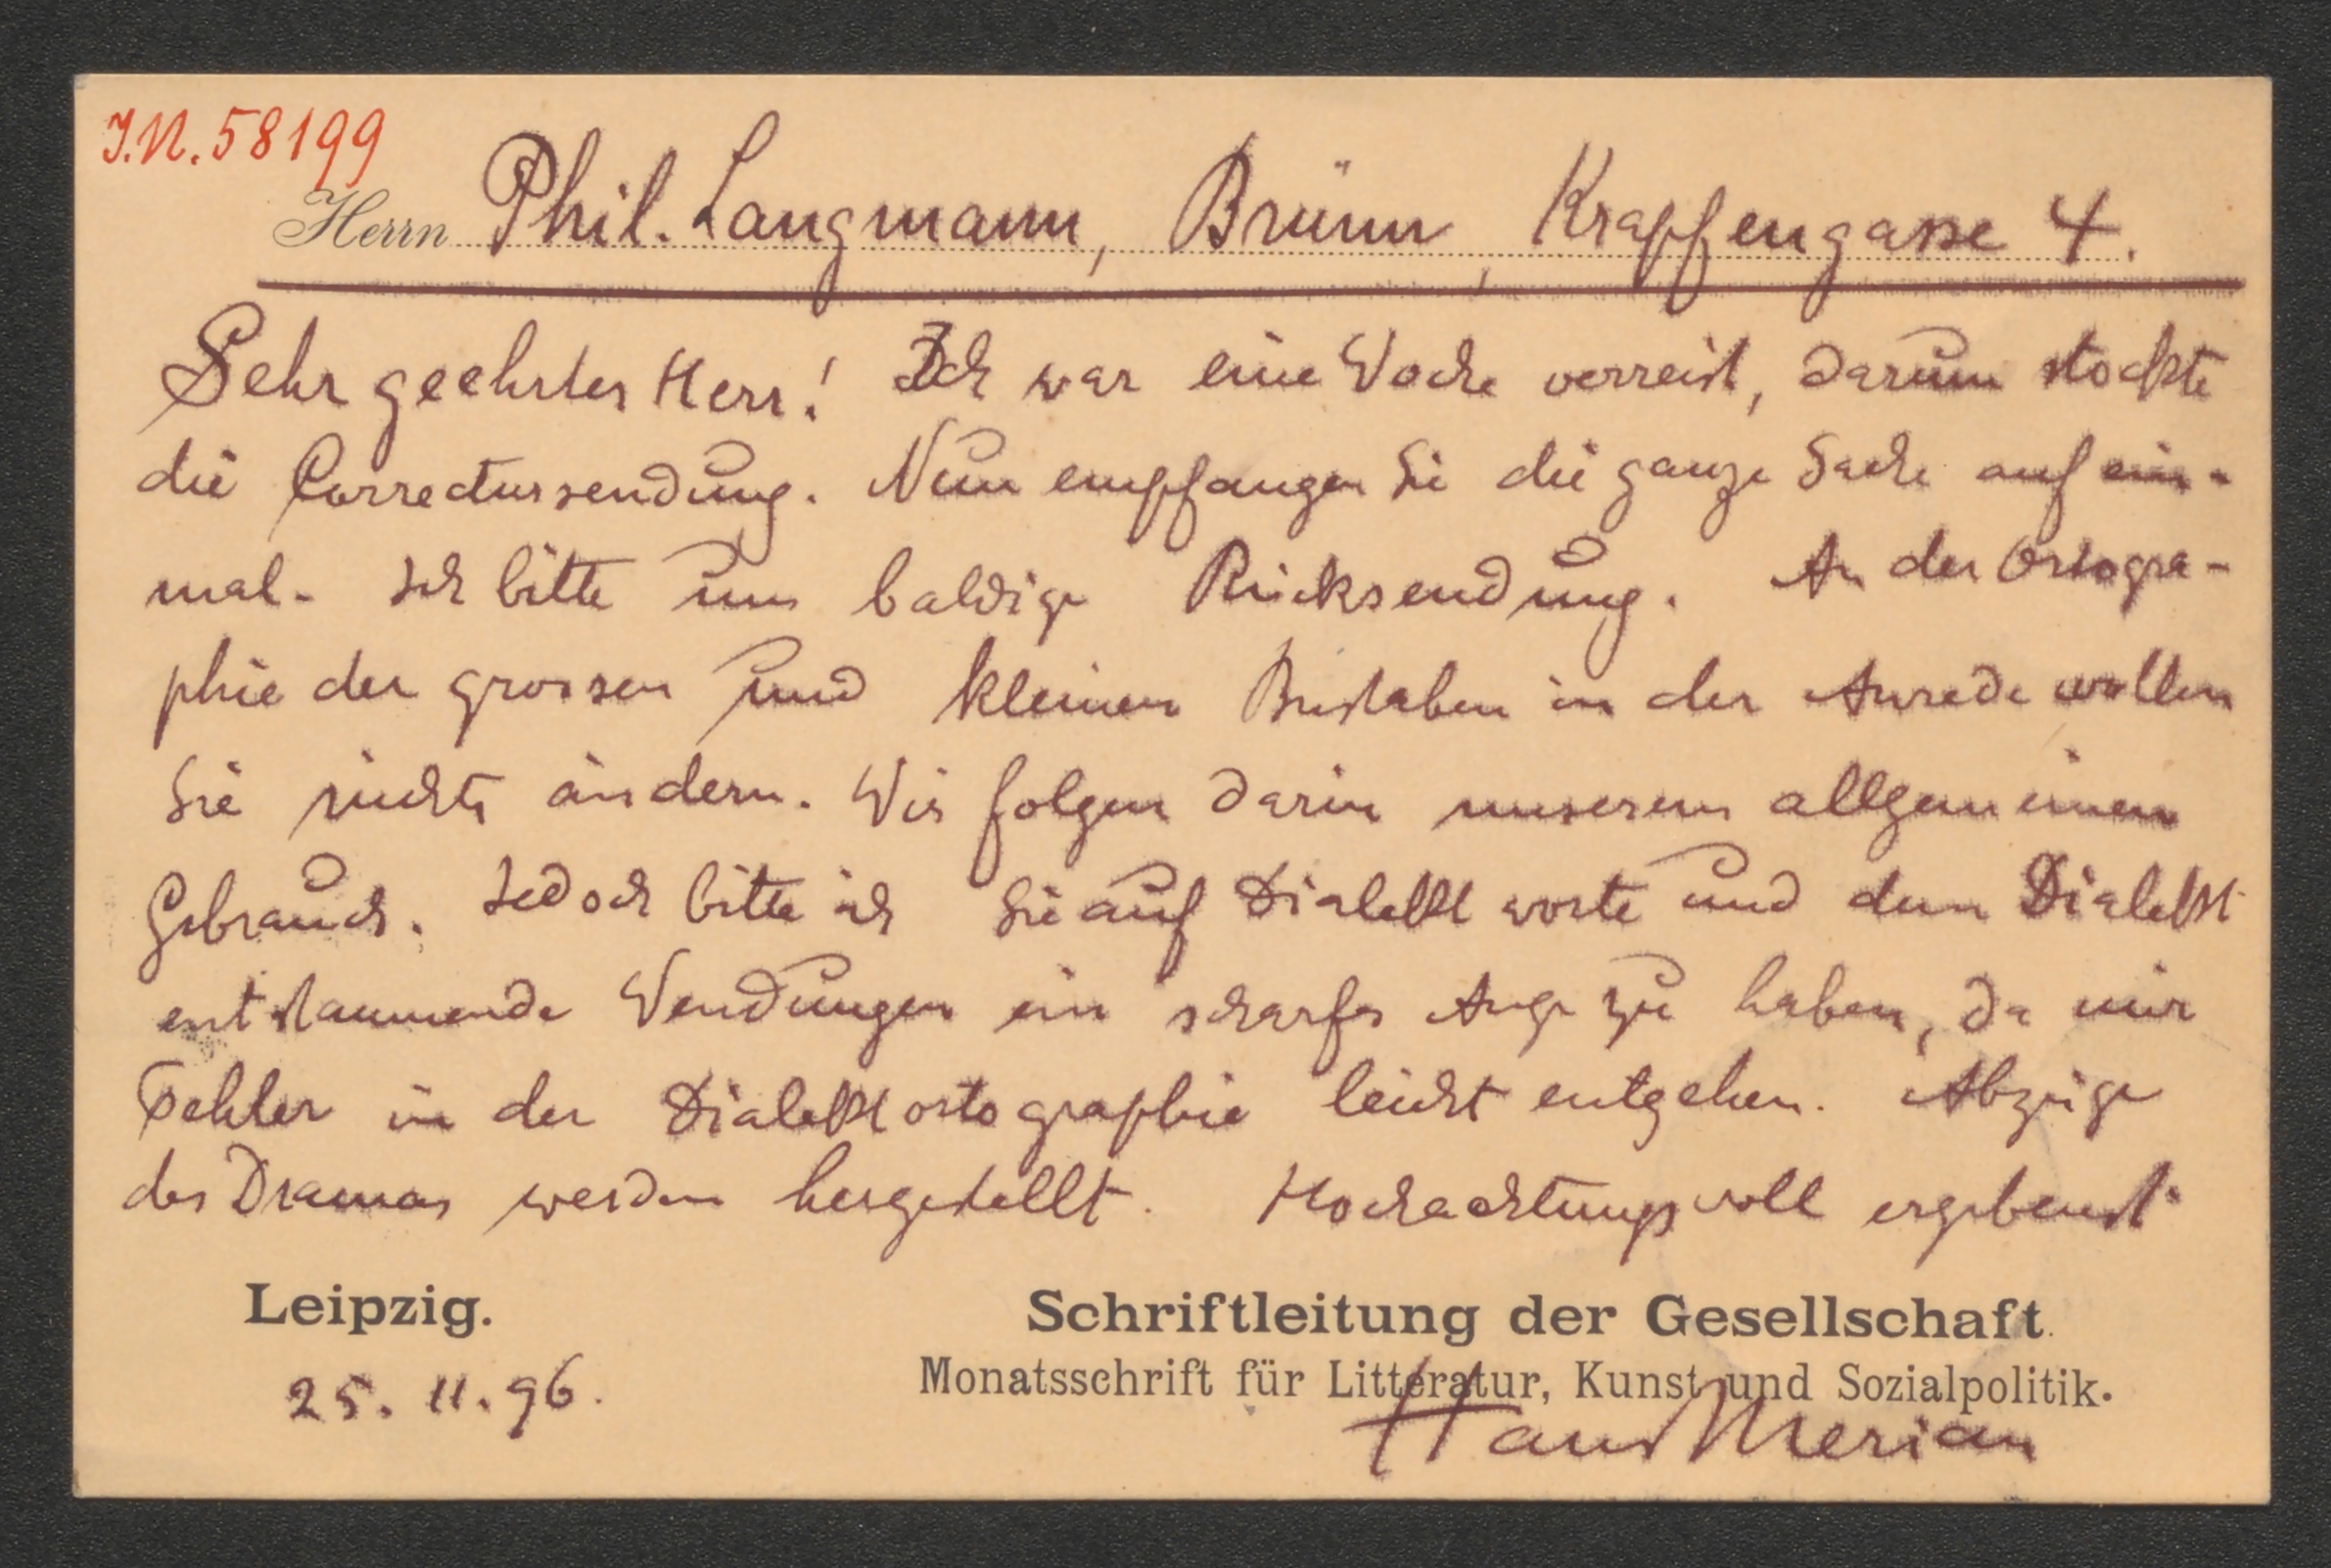 J.N. 58199
Herrn Phil. Langmann, Brünn, Krapfengasse 4.
Sehr geehrter Herr! Ich war eine Woche verreist, darum stockte
die Correctursendung. Nun empfangen Sie die ganze Sache auf ein-
mal. Ich bitte um baldige Rücksendung. An der Ortogra-
phie der grossen und kleinen Bustaben in der Anrede wollen
Sie nichts ändern. Wir folgen darin unserem allgemeinen
Gebrauch. Jedoch bitte ich Sie auf Dialektworte und dem Dialekt
entstammende Wendungen ein scharfes Auge zu haben, da mir
Fehler in der Dialektortographie leicht entgehen. Abzüge
des Dramas werden hergestellt. Hochachtungsvoll ergebenst
Leipzig. Schriftleitung der Gesellschaft.
25. 11. 96. Monatsschrift für Litteratur, Kunst und Sozialpolitik.
Hans Merian